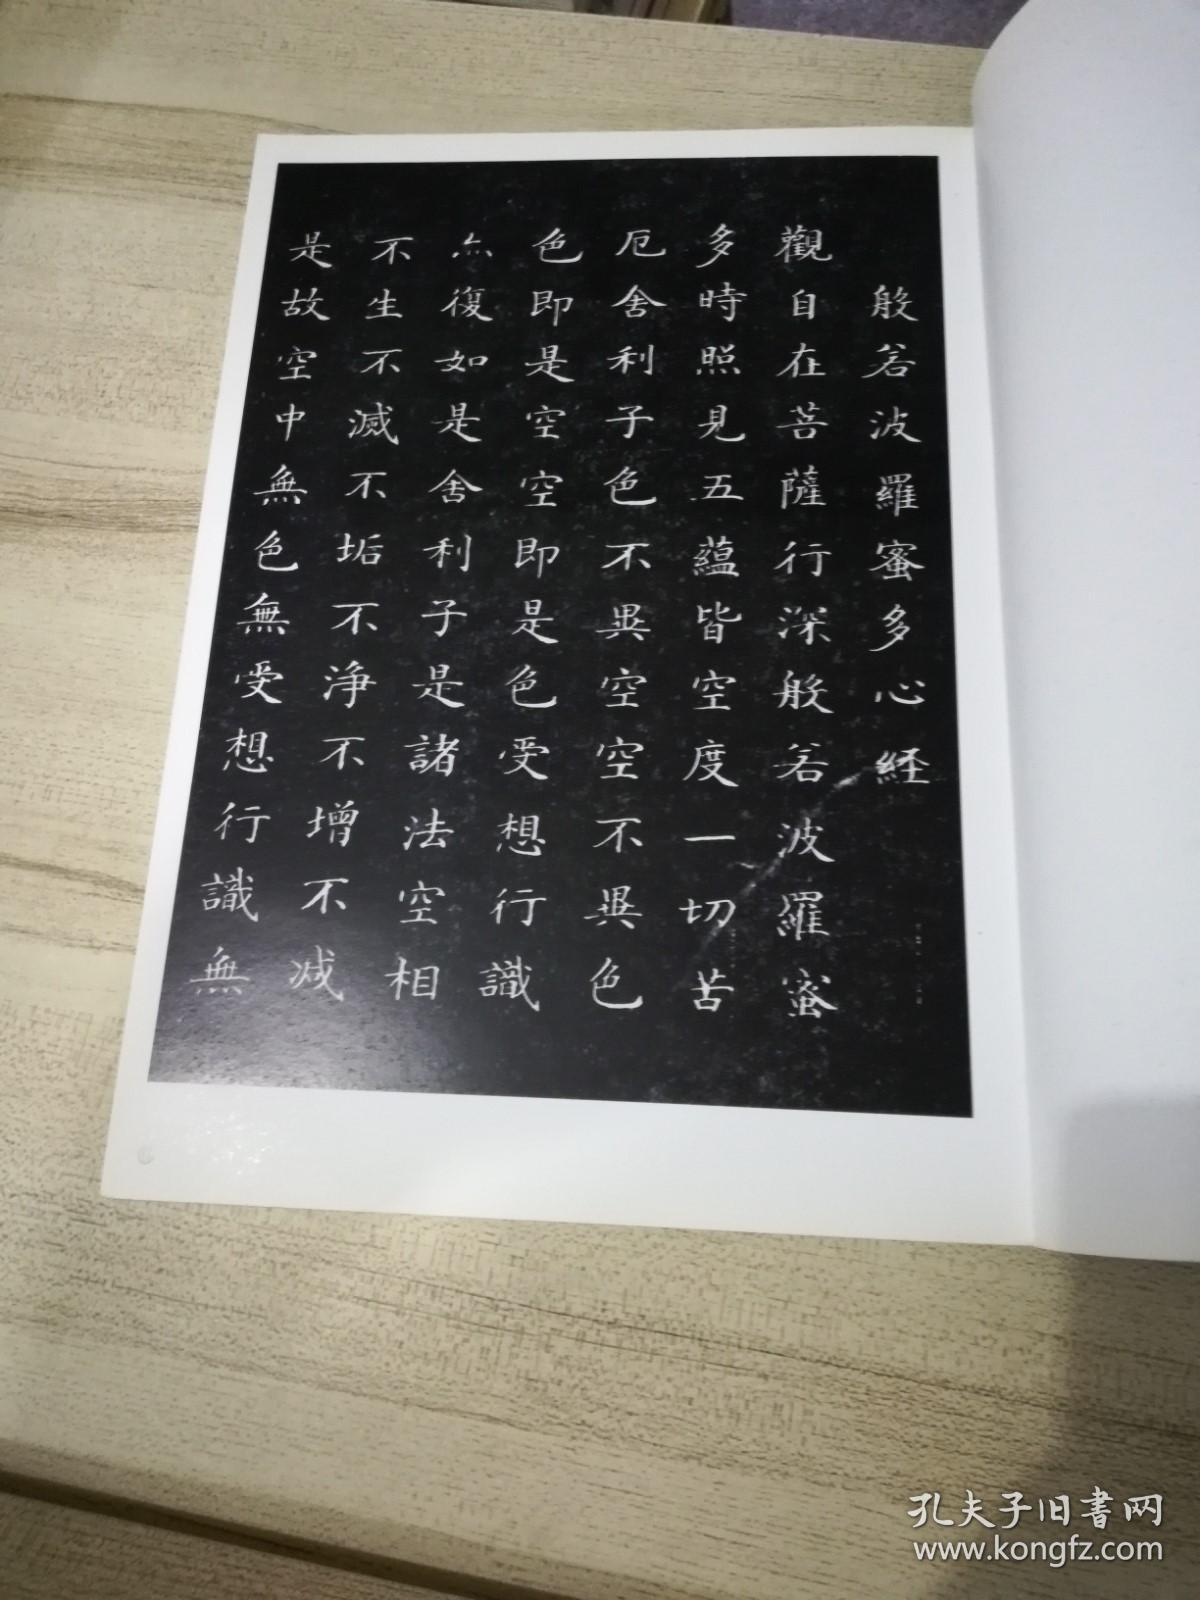 般若波羅蜜多心経
觀自在菩薩行深般若波羅蜜
多時照見五蘊皆空度一切苦
厄舍利子色不異空空不異色
色即是空空即是色受想行識
亦復如是舍利子是諸法空相
不生不滅不垢不淨不增不減
是故空中無色無受想行識無
孔夫子旧书网
www.kongfz.com